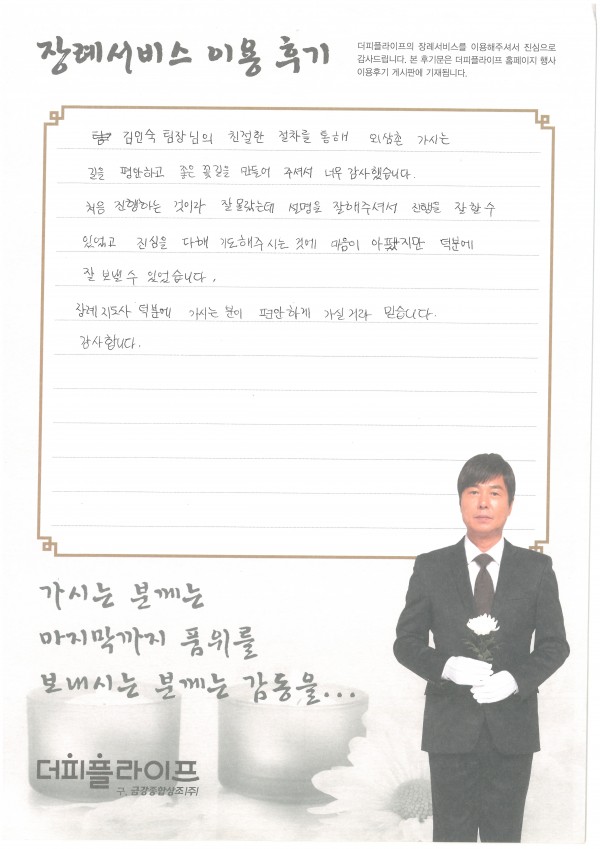 장례서비스 이용 후기
더피플라이프의 장례서비스를 이용해주셔서 진심으로
감사드립니다. 본 후기문은 더피플라이프 홈페이지 행사
이용후기 게시판에 기재됩니다.
김민숙 팀장님의 친절한 절차를 통해 외삼촌 가시는
길을 평안하고 좋은 꽃길을 만들어 주셔서 너무 감사했습니다.
처음 진행하는 것이라 잘 몰랐는데 설명을 잘해주셔서 진행을 잘 할 수
있었고 진심을 다해 기도해주시는 것에 마음이 아팠지만 덕분에
잘 보낼 수 있었습니다.
장례지도사 덕분에 가시는 분이 편안하게 가실거라 믿습니다.
감사합니다.
가시는 분께는
마지막까지 품위를
보내시는 분께는 감동을...
더피플라이프
구. 금강종합상조(주)